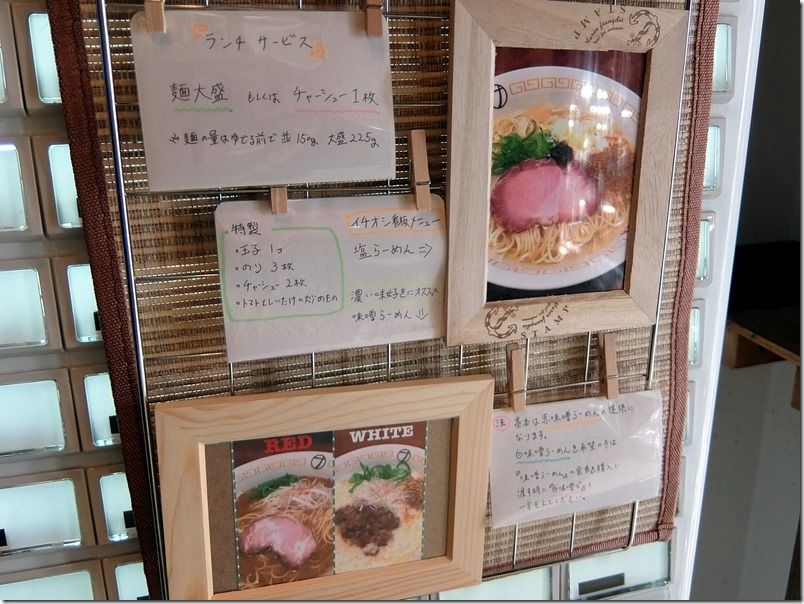 ランチ サービス
麺大盛 もしくは チャーシュー 1枚
※麺の量はゆでる前で 並150g 大盛225g
STAMP
特製
・玉子 1コ
・のり 3枚
・チャーシュー 2枚
・トマトとしいたけの炒めもの
イチオシ看板メニュー
塩らーめん⇨
濃い味好きにオススメ
味噌らーめん⇩
STAMP
RED
WHITE
注 基本は赤味噌らーめんの提供に
なります。
白味噌らーめんを希望の方は
"味噌らーめん"の食券を購入し
渡す時に"白味噌で"と
一言そえてください。